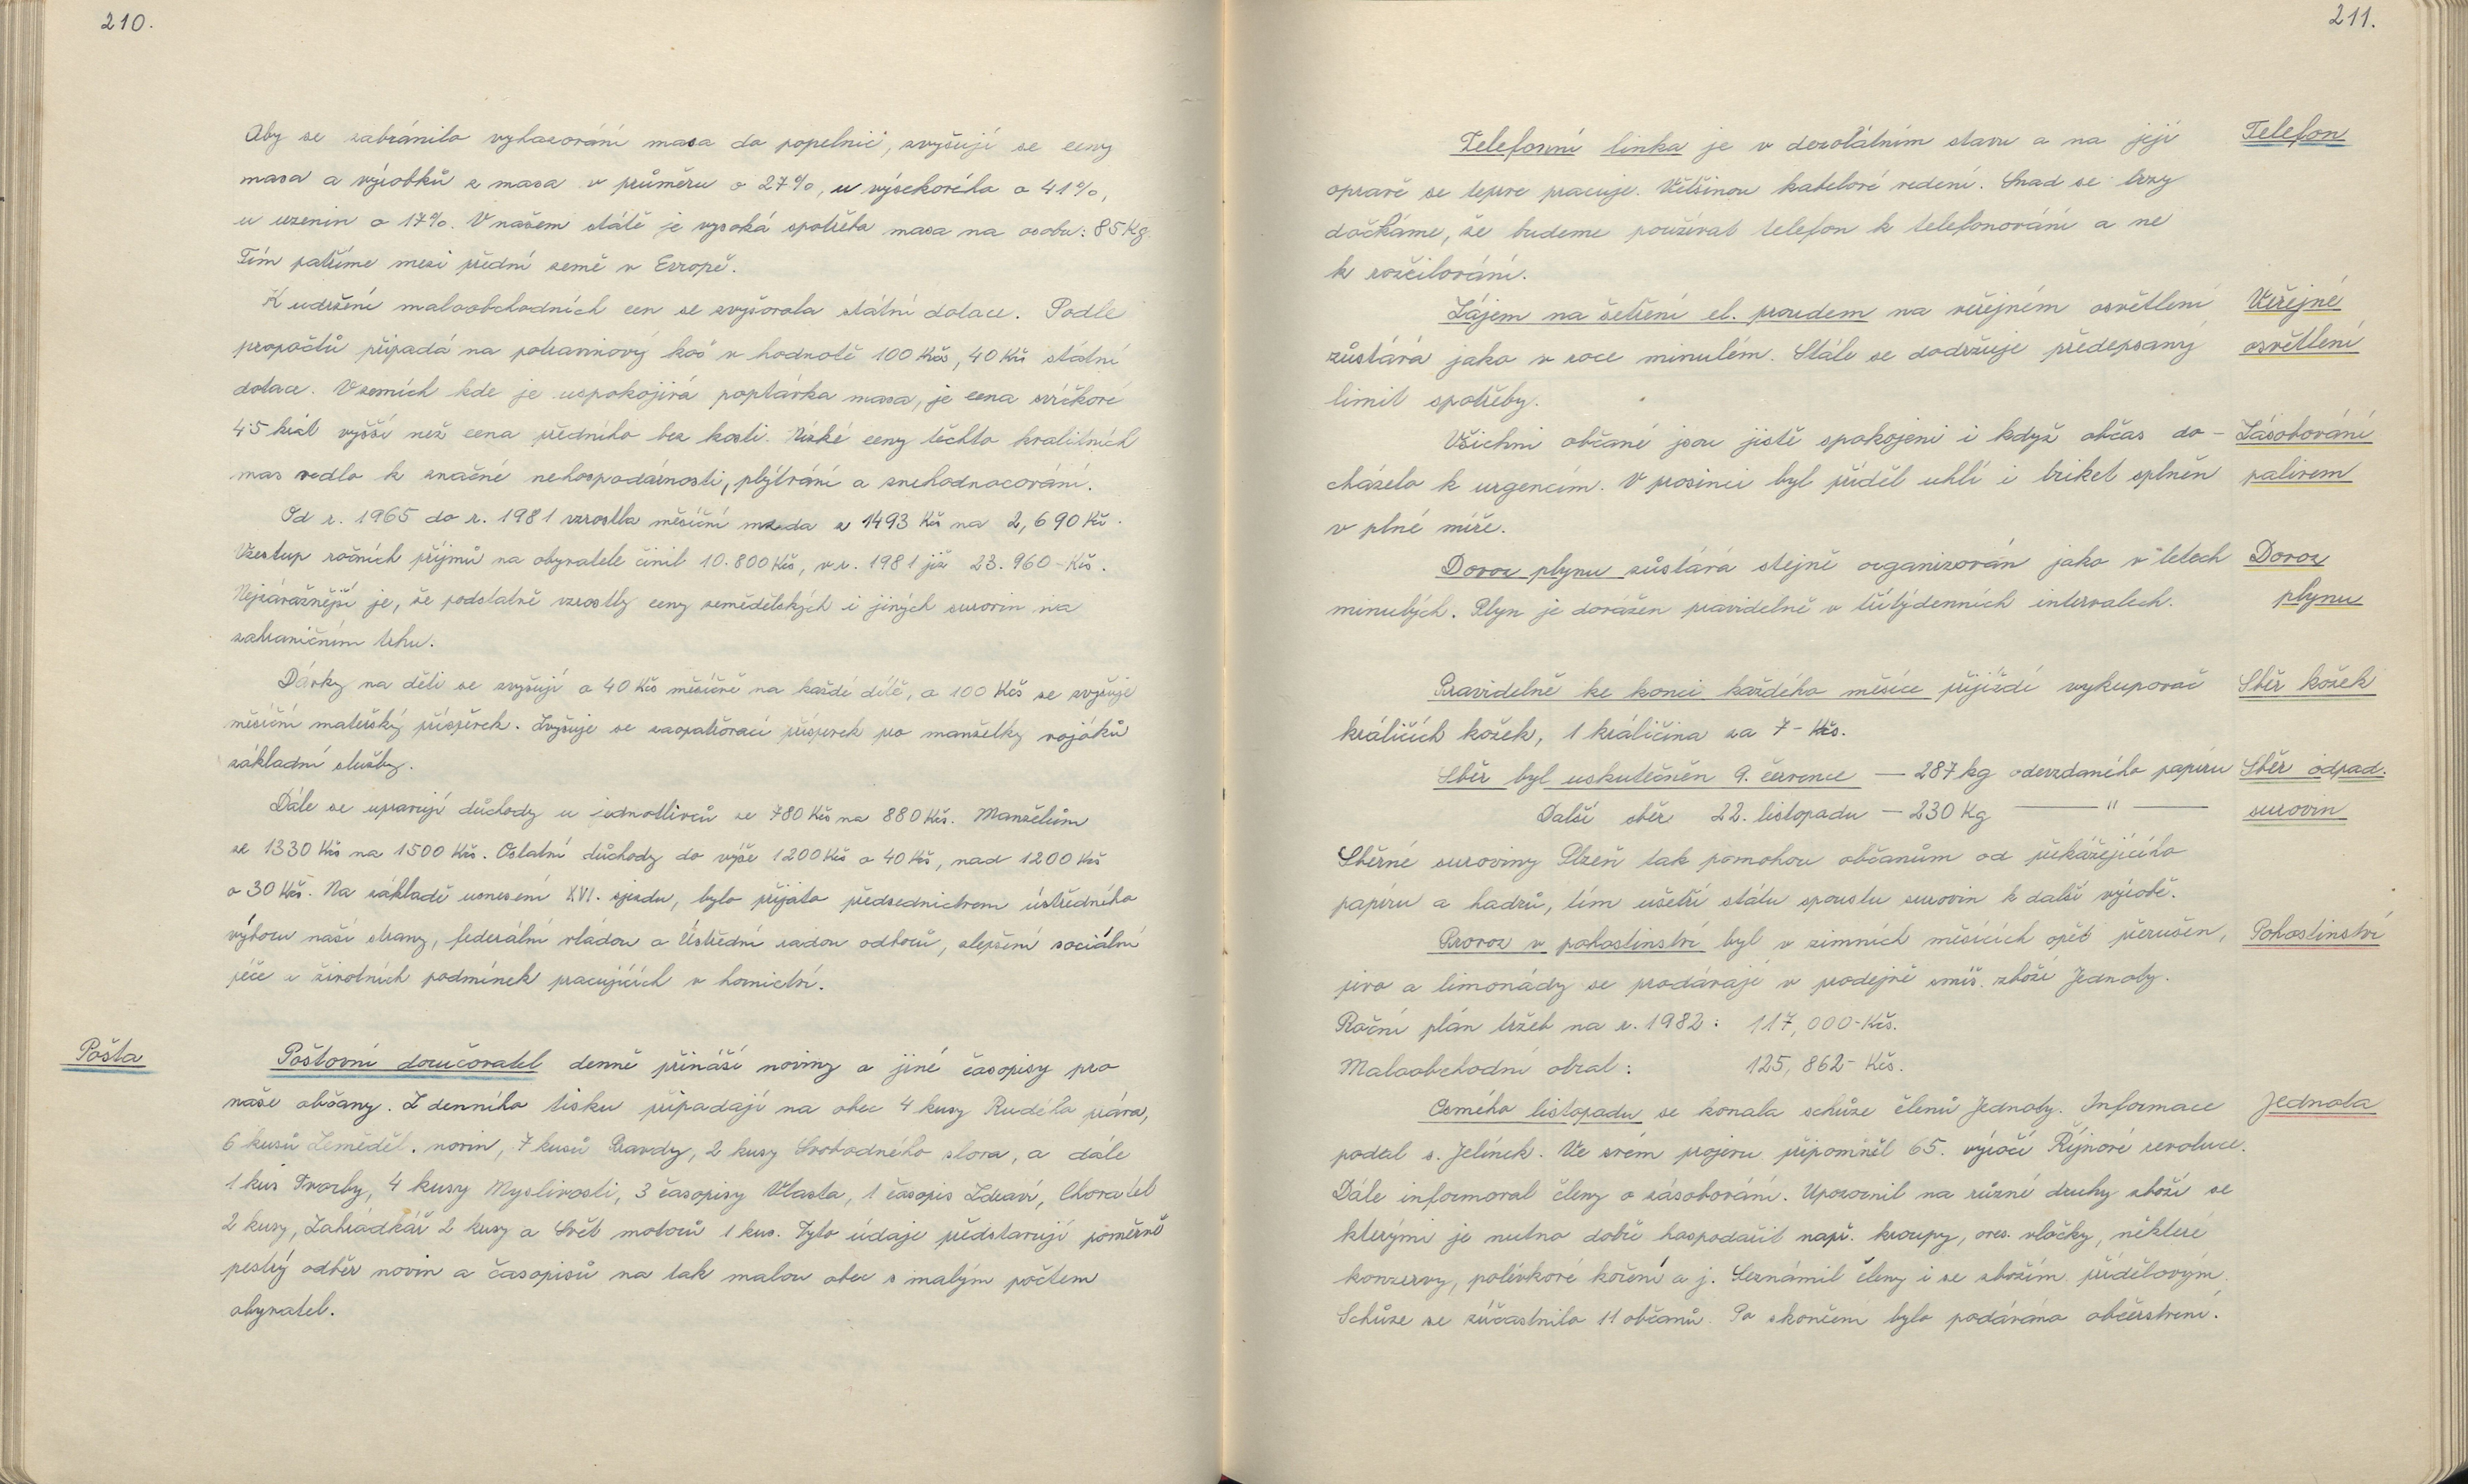 210.
Aby se zabránilo vyhazování masa do popelnic, zvyšují se ceny
masa a výrobků z masa v průměru o 27%, u výsekového o 41%,
u uzenin o 17%. V našem státě je vysoká spotřeba masa na osobu: 85 Kg.
Tím patříme mezi přední země v Evropě.
K udržení maloobchodních cen se zvyšovala státní dotace. Podle
propočtů připadá na potravinový koš v hodnotě 100 Kčs, 40 Kčs státní
dotace. V zemích kde je uspokojivá poptávka masa, je cena svíčkové
4-5 krát vyšší než cena předního bez kosti. Nízké ceny těchto kvalitních
mas vedlo k značné nehospodárnosti, plýtvání a znehodnocování.
Od r. 1965 do r. 1981 vzrostla měsíční mzda z 1493 Kčs na 2,690 Kčs.
Vzestup ročních příjmů na obyvatele činil 10.800 Kčs, v r. 1981 již 23.960-Kčs.
Nejzávažnější je, že podstatně vzrostly ceny zemědělských i jiných surovin na
zahraničním trhu.
Dávky na děti se zvyšují o 40 Kčs měsíčně na každé dítě, o 100 Kčs se zvyšuje
měsíční mateřský příspěvek. Zvyšuje se zaopatřovací příspěvek pro manželky vojáků
základní služby.
Dále se upravují důchody u jednotlivců ze 780 Kčs na 880 Kčs. Manželům
ze 1330 Kčs na 1500 Kčs. Ostatní důchody do výše 1200 Kčs o 40 Kčs, nad 1200 Kčs
o 30 Kčs. Na základě usnesení XVI. sjezdu, bylo přijato předsednictvem ústředního
výboru naší strany, federální vládou a Ústřední radou odborů, zlepšení sociální
péče a životních podmínek pracujících v hornictví.
Pošta
Poštovní doručovatel denně přináší noviny a jiné časopisy pro
naše občany. Z denního tisku připadají na obec 4 kusy Rudého práva,
6 kusů Zeměděl. novin, 7 kusů Pravdy, 2 kusy Svobodného slova, a dále
1 kus Tvorby, 4 kusy Myslivosti, 3 časopisy Vlasta, 1 časopis Zdraví, Chovatel
2 kusy, Zahrádkář 2 kusy a Svět motorů 1 kus. Tyto údaje představují poměrně
pestrý odběr novin a časopisů na tak malou obec s malým počtem
obyvatel.
211.
Telefonní linka je v dezolátním stavu a na její
Telefon
opravě se teprve pracuje. Většinou kabelové vedení. Snad se brzy
dočkáme, že budeme používat telefon k telefonování a ne
k rozčilování.
Zájem na šetření el. proudem na veřejném osvětlení
Veřejné
zůstává jako v roce minulém. Stále se dodržuje předepsaný
osvětlení
limit spotřeby.
Všichni občané jsou jistě spokojeni i když občas do-
Zásobování
cházelo k urgencím. V prosinci byl příděl uhlí i briket splněn
palivem
v plné míře.
Dovoz plynu zůstává stejně organizován jako v letech
Dovoz
minulých. Plyn je dovážen pravidelně v třítýdenních intervalech.
plynu
Pravidelně ke konci každého měsíce přijíždí vykupovač
Sběr kožek
králičích kožek, 1 králičina za 7-Kčs.
Sběr byl uskutečněn 9. července — 287 kg odevzdaného papíru
Sběr odpad.
Další sběr 22. listopadu — 230 Kg — " —
surovin
Sběrné suroviny Plzeň tak pomohou občanům od překážejícího
papíru a hadrů, tím ušetří státu spoustu surovin k další výrobě.
Provoz v pohostinství byl v zimních měsících opět přerušen,
Pohostinství
pivo a limonády se prodávají v prodejně smíš. zboží Jednoty.
Roční plán tržeb na r. 1982: 117,000-Kčs.
Maloobchodní obrat: 125,862- Kčs.
Osmého listopadu se konala schůze členů Jednoty. Informace
Jednota
podal s. Jelínek. Ve svém projevu připomněl 65. výročí Říjnové revoluce.
Dále informoval členy o zásobování. Upozornil na různé druhy zboží se
kterými je nutno dobře hospodařit např. kroupy, oves. vločky, některé
konzervy, polévkové koření a j. Seznámil členy i se zbožím přídělovým.
Schůze se zúčastnilo 11 občanů. Po skončení bylo podáváno občerstvení.